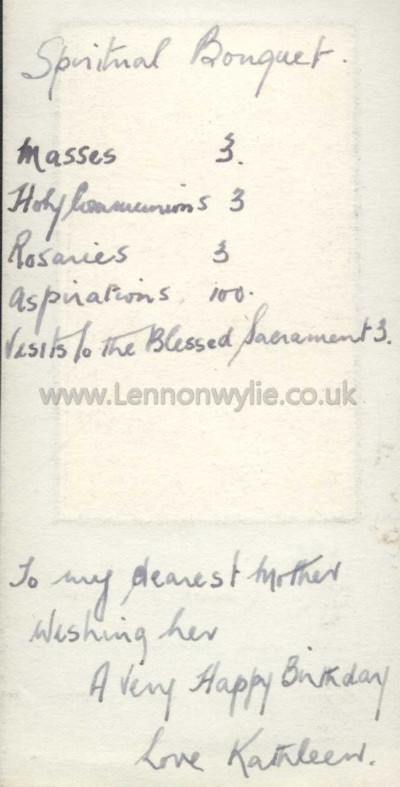 Spiritual Bouquet.
Masses 3.
Holy Communions 3
Rosaries 3
Aspirations. 100.
Visits to the Blessed Sacrament 3.
www.Lennonwylie.co.uk
To my dearest Mother
Wishing her
A Very Happy Birthday
Love Kathleen.